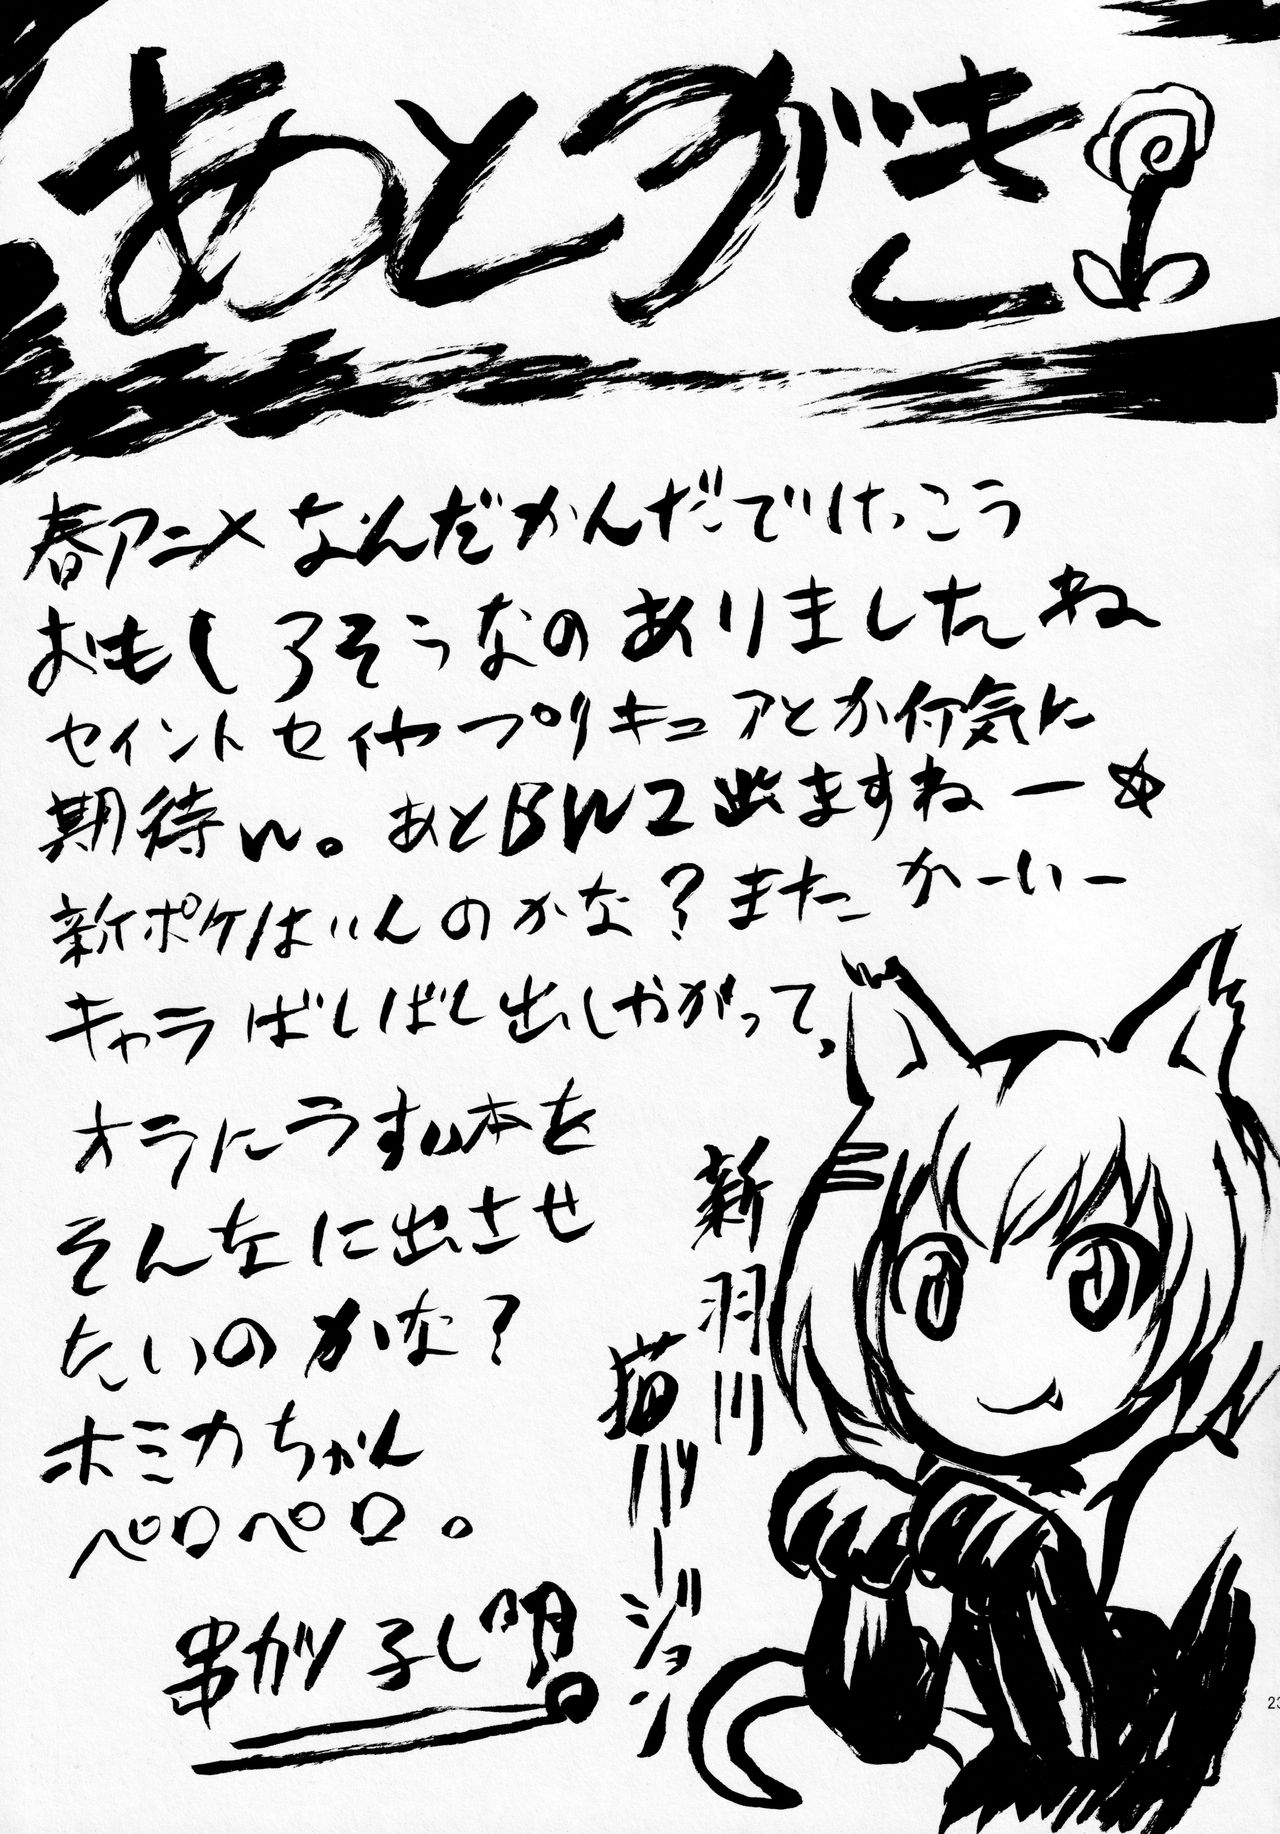 あとがき
春アニメなんだかんだでけっこう
おもしろそうなのありましたね
セイントセイヤプリキュアとか何気に
期待w。あとBW2出ますねー☆
新ポケはいんのかな？またかーいー
キャラばしばし出しやがって。
オラにうすい本を
そんなに出させ
たいのかな？
ホミカちゃん
ペロペロ。
串ガツ子し明
新羽川
猫バージョン
23